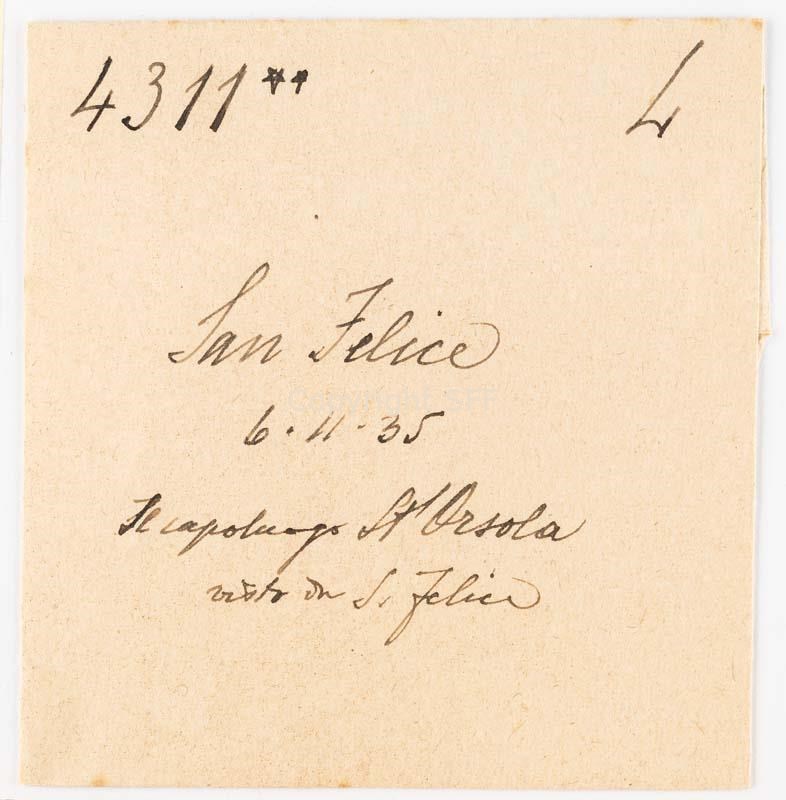 4311** L
San Felice
Copyright SFF
6.11.35
Il capoluogo St' Orsola
visto da S. Felice